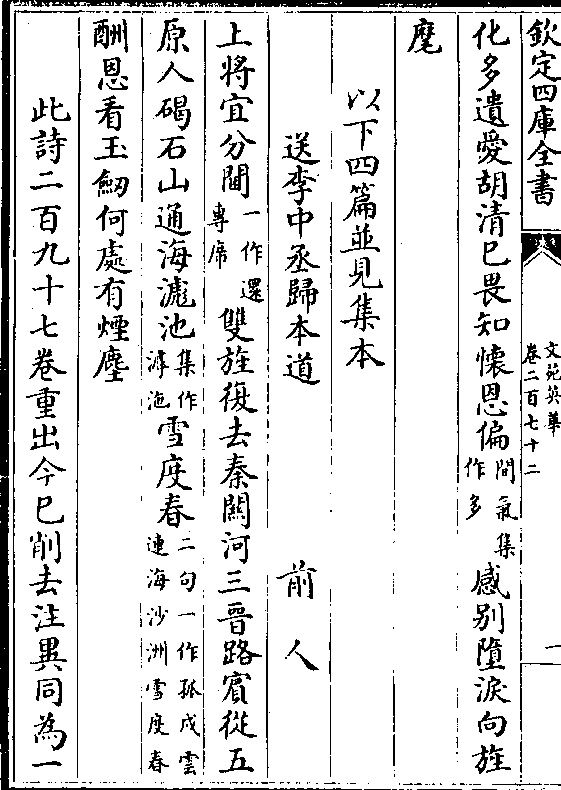 欽定四庫全書
文苑英華
卷二百七十二
一
化多遺愛胡清已畏知懷恩偏間氣集作多感别墮淚向旌
麾
以下四篇並見集本
送李中丞歸本道
前人
上將宜分閫一作還專席雙旌復去秦關河三晉路賓從五
原人碣石山通海滮池集作滹沲雪度春二句一作孤戍雲連海沙洲雪度春
酬恩看玉劔何處有煙塵
此詩二百九十七卷重出今已削去注異同為一